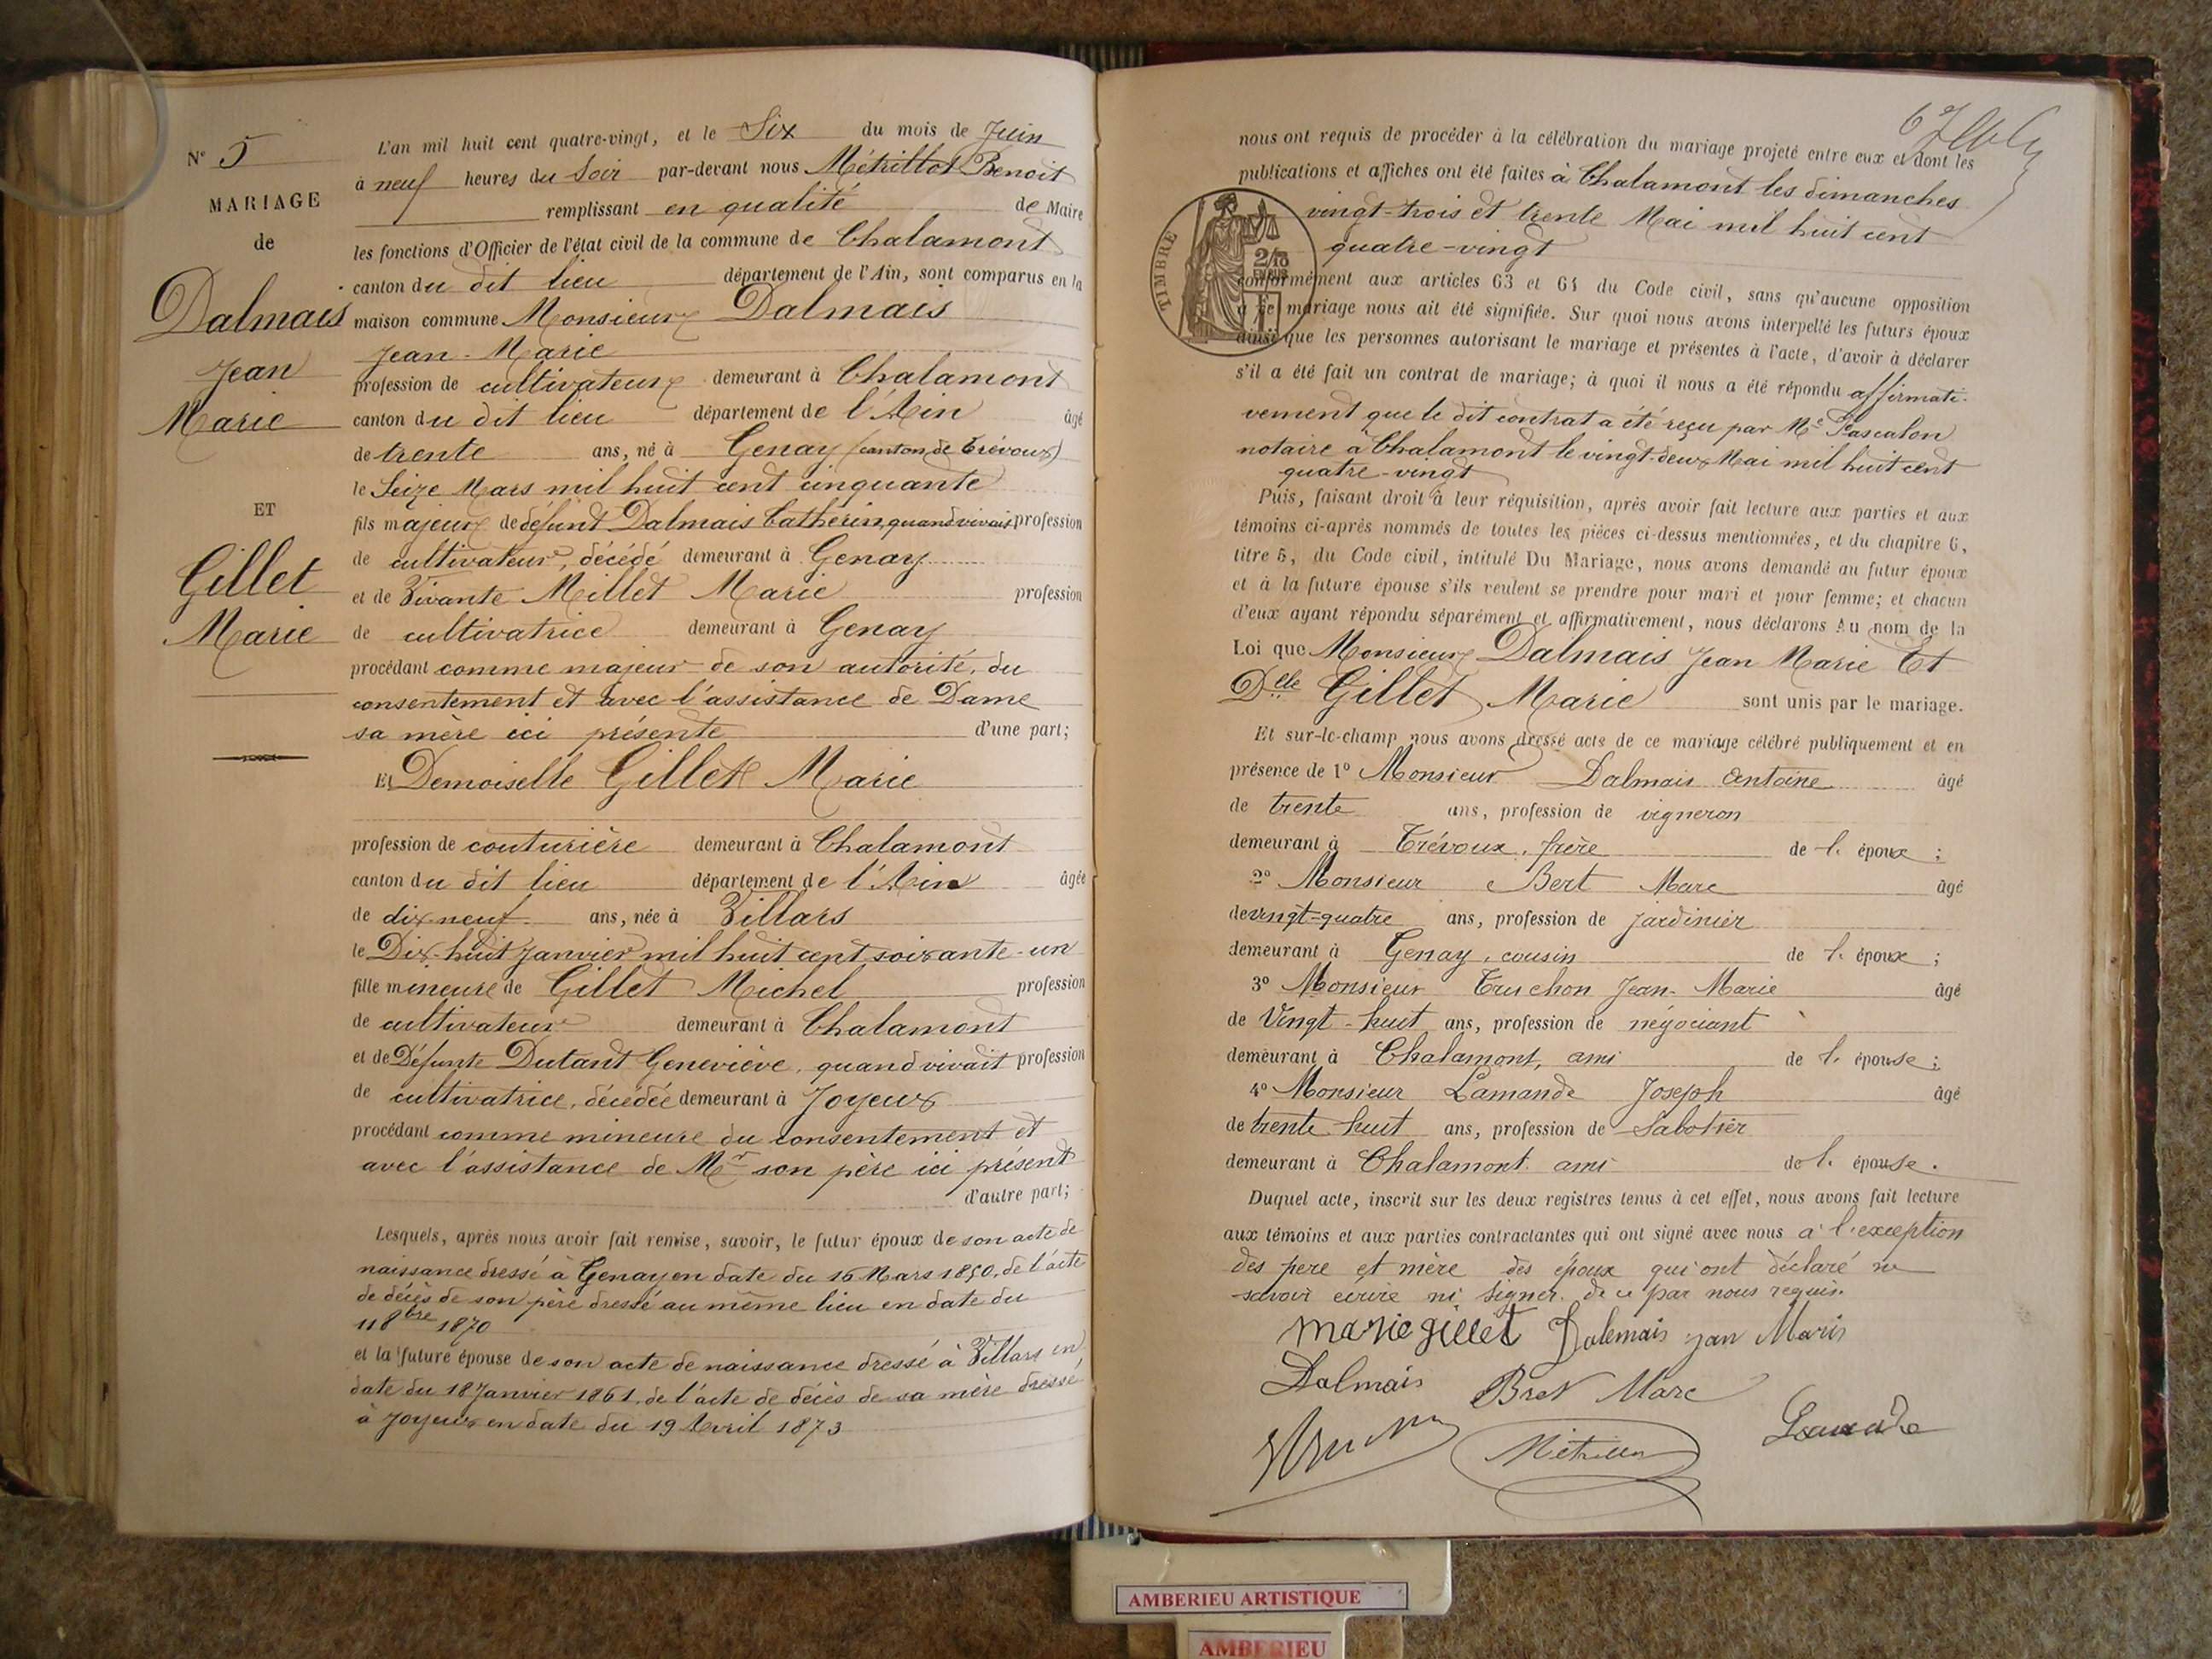 N° 5
MARIAGE
de
Dalmais
Jean
Marie
ET
Gillet
Marie
L'an mil huit cent quatre-vingt, et le Six du mois de Juin
à neuf heures du Soir par-devant nous Métrillot Benoit
remplissant en qualité de Maire
les fonctions d'Officier de l'état civil de la commune de Chalamont
canton du dit lieu département de l'Ain, sont comparus en la
maison commune Monsieur Dalmais
Jean-Marie
profession de cultivateur demeurant à Chalamont
canton du dit lieu département de l'Ain âgé
de trente ans, né à Genay (canton de Trévoux)
le Seize Mars mil huit cent cinquante
fils majeur de défunt Dalmais Catherin, quand vivait profession
de cultivateur, décédé demeurant à Genay
et de Vivante Millet Marie profession
de cultivatrice demeurant à Genay
procédant comme majeur de son autorité, du
consentement et avec l'assistance de Dame
sa mère ici présente d'une part;
Et Demoiselle Gillet Marie
profession de couturière demeurant à Chalamont
canton du dit lieu département de l'Ain âgée
de dix-neuf ans, née à Villars
le Dix-huit Janvier mil huit cent soixante-un
fille mineure de Gillet Michel profession
de cultivateur demeurant à Chalamont
et de Défunte Dutant Geneviève, quand vivait profession
de cultivatrice, décédée demeurant à Joyeux
procédant comme mineure du consentement et
avec l'assistance de Mr son père ici présent
d'autre part;
Lesquels, après nous avoir fait remise, savoir, le futur époux de son acte de
naissance dressé à Genay en date du 16 Mars 1850, de l'acte
de décès de son père dressé au même lieu en date du
11 8bre 1870
et la future épouse de son acte de naissance dressé à Villars en
date du 18 Janvier 1861, de l'acte de décès de sa mère dressé
à Joyeux en date du 19 Avril 1873
nous ont requis de procéder à la célébration du mariage projeté entre eux et dont les
publications et affiches ont été faites à Chalamont les dimanches
vingt-trois et trente Mai mil huit cent
quatre-vingt
TIMBRE
2/10
EN SUS
conformément aux articles 63 et 64 du Code civil, sans qu'aucune opposition
à ce mariage nous ait été signifiée. Sur quoi nous avons interpellé les futurs époux
ainsi que les personnes autorisant le mariage et présentes à l'acte, d'avoir à déclarer
s'il a été fait un contrat de mariage; à quoi il nous a été répondu affirmati-
vement que le dit contrat a été reçu par Me Pascalon
notaire à Chalamont le vingt-deux Mai mil huit cent
quatre-vingt
Puis, faisant droit à leur réquisition, après avoir fait lecture aux parties et aux
témoins ci-après nommés de toutes les pièces ci-dessus mentionnées, et du chapitre 6,
titre 5, du Code civil, intitulé Du Mariage, nous avons demandé au futur époux
et à la future épouse s'ils veulent se prendre pour mari et pour femme; et chacun
d'eux ayant répondu séparément et affirmativement, nous déclarons Au nom de la
Loi que Monsieur Dalmais Jean Marie Et
Delle Gillet Marie sont unis par le mariage.
Et sur-le-champ nous avons dressé acte de ce mariage célébré publiquement et en
présence de 1° Monsieur Dalmais Antoine âgé
de trente ans, profession de vigneron
demeurant à Trévoux, frère de l. époux ;
2° Monsieur Bert Marc âgé
de vingt-quatre ans, profession de jardinier
demeurant à Genay, cousin de l. époux ;
3° Monsieur Truchon Jean-Marie âgé
de Vingt-huit ans, profession de négociant
demeurant à Chalamont, ami de l. épouse ;
4° Monsieur Lamande Joseph âgé
de trente huit ans, profession de Sabotier
demeurant à Chalamont ami de l. épouse.
Duquel acte, inscrit sur les deux registres tenus à cet effet, nous avons fait lecture
aux témoins et aux parties contractantes qui ont signé avec nous à l'exception
des père et mère des époux qui ont déclaré ne
savoir écrire ni signer. de ce par nous requis.
marie gillet Dalemais jan Maris
Dalmais Bret Marc
Métrillot Lamande
AMBERIEU ARTISTIQUE
AMBERIEU